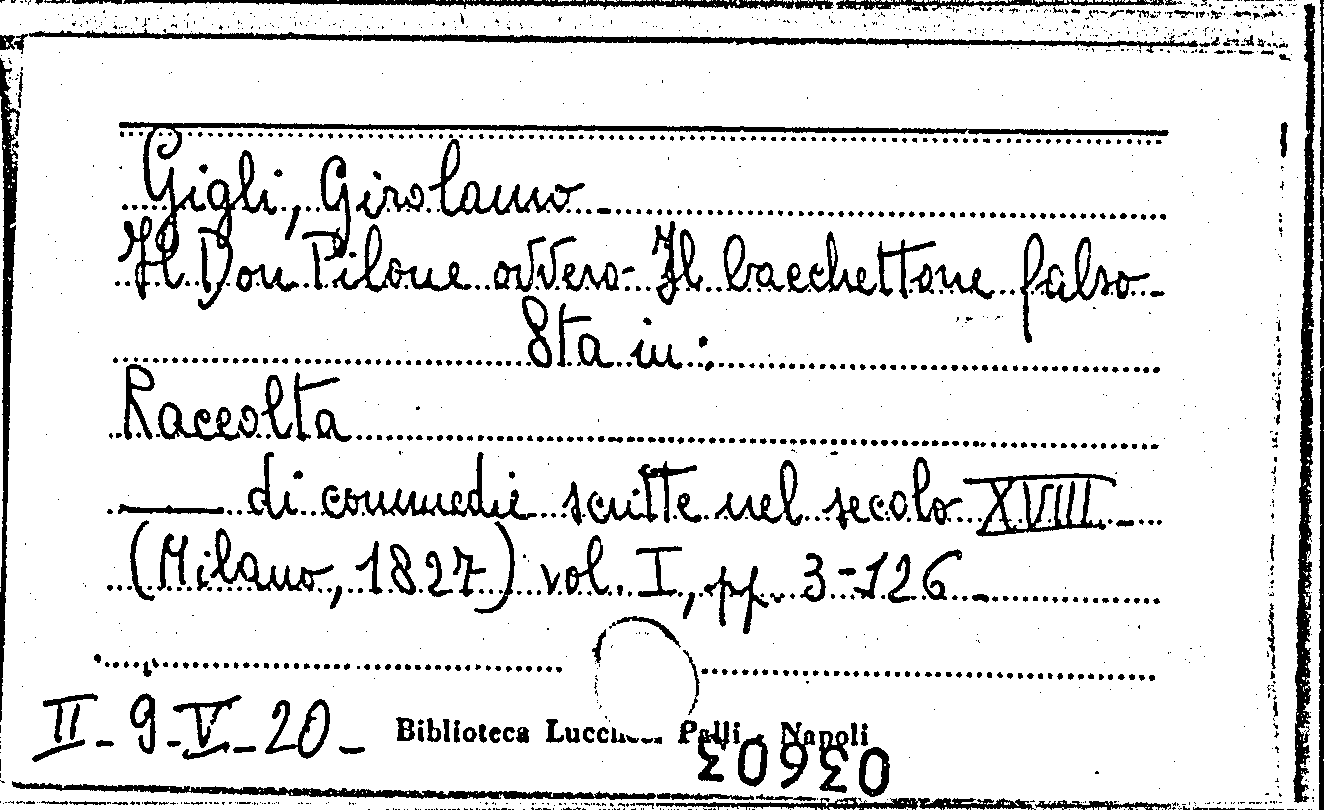 Gigli, Girolamo
Il Don Pilone ovvero - Il bacchettone falso -
Sta in :
Raccolta
—— di commedie scritte nel secolo XVIII. -
(Milano, 1827) vol. I, pp. 3-126 -
II - 9 - V - 20 - Biblioteca Palli - Napoli
03603